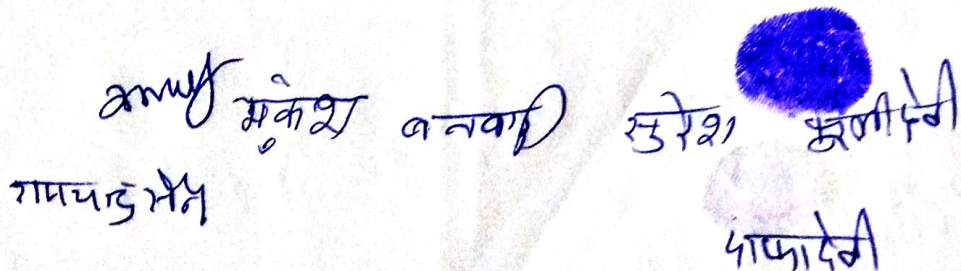 मुकेश बनवारी सुरेश मूलीदेवी
रामचन्द्र सैन
पाफादेवी